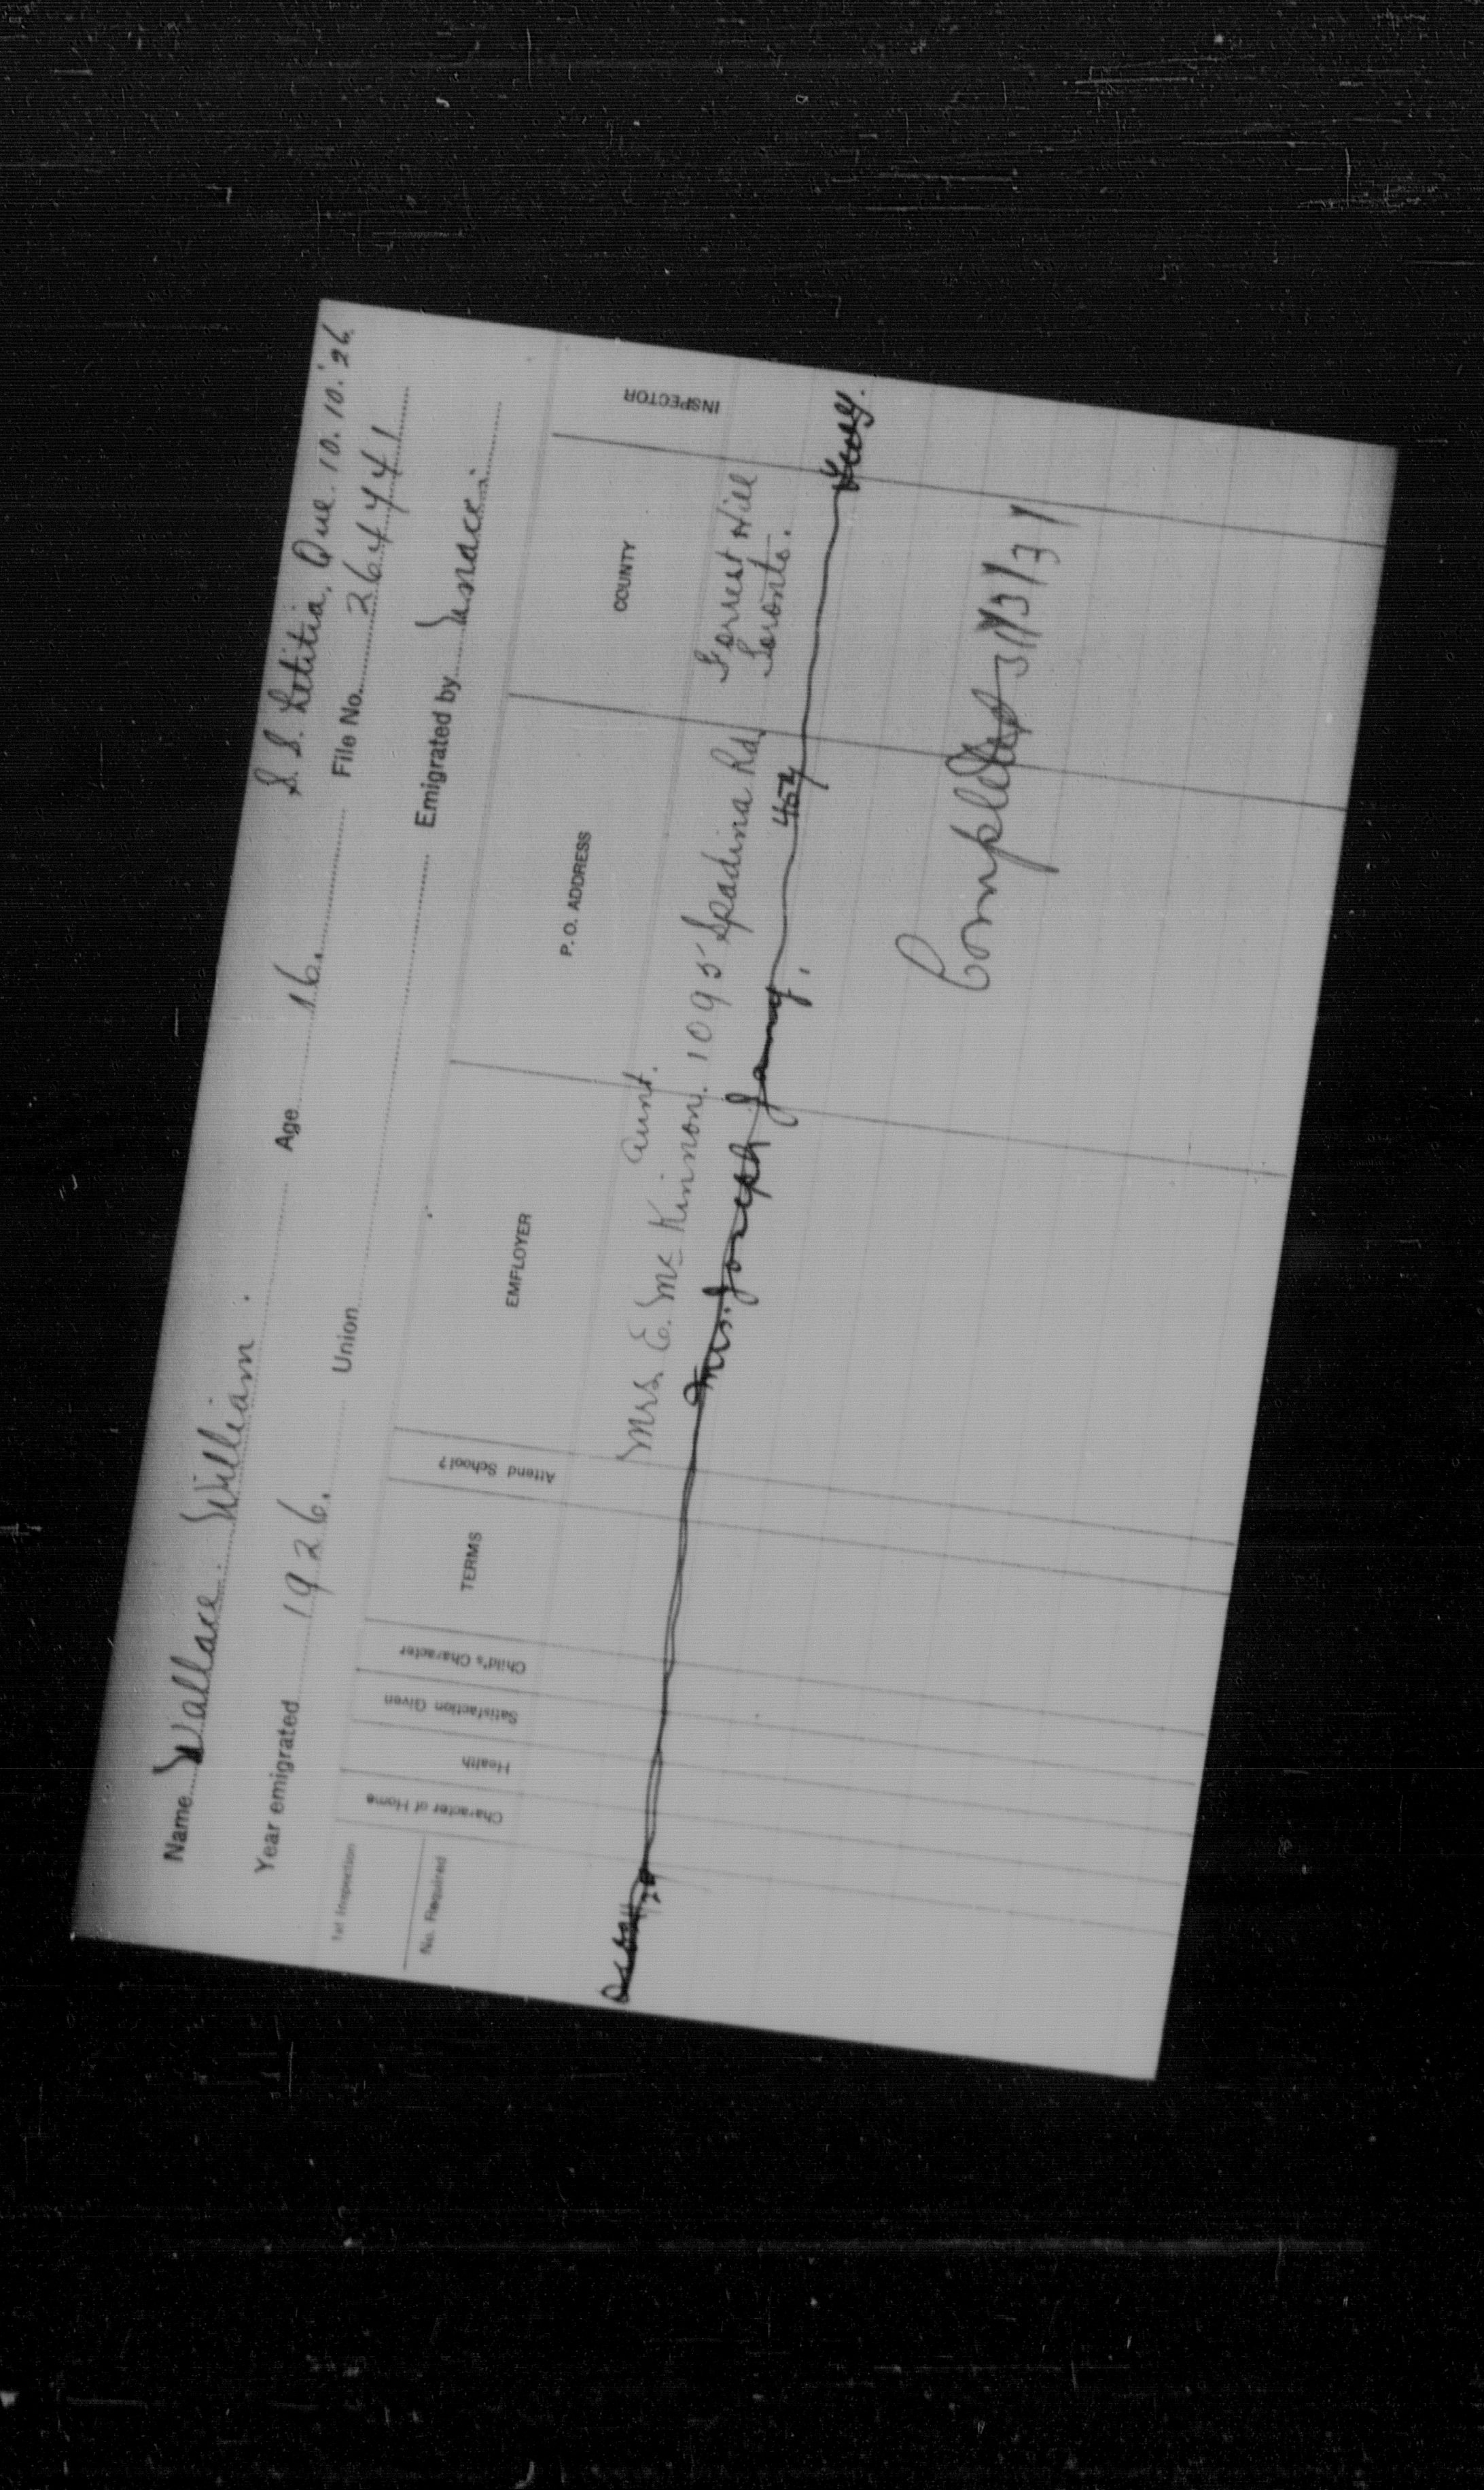 S. S. Letitia, Que. 10.10.'26.
Name Wallace William. Age 16. File No. 264441
Year emigrated 1926. Union Emigrated by
1st Inspection
No. Required
Character of Home
Health
Satisfaction Given
Child's Character
TERMS
Attend School?
EMPLOYER
P. O. ADDRESS
COUNTY
INSPECTOR
aunt.
Mrs. E. McKinnon. 1095 Spadina Rd. Forrest Hill
Toronto.
Mrs. Joseph
Completed 31/3/31